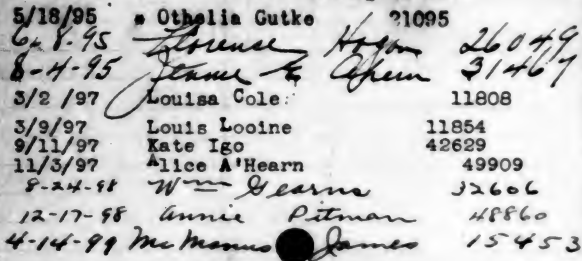 5/18/95 * Othelia Gutke 21095
6-8-95 Florense Hogan 26049
8-4-95 Jennie E Ahern 31467
3/2 /97 Louisa Cole 11808
3/9/97 Louis Looine 11854
9/11/97 Kate Igo 42629
11/3/97 Alice A'Hearn 49909
8-24-98 Wm Gearns 32606
12-17-98 Annie Pitman 48860
4-14-99 McManus James 15453